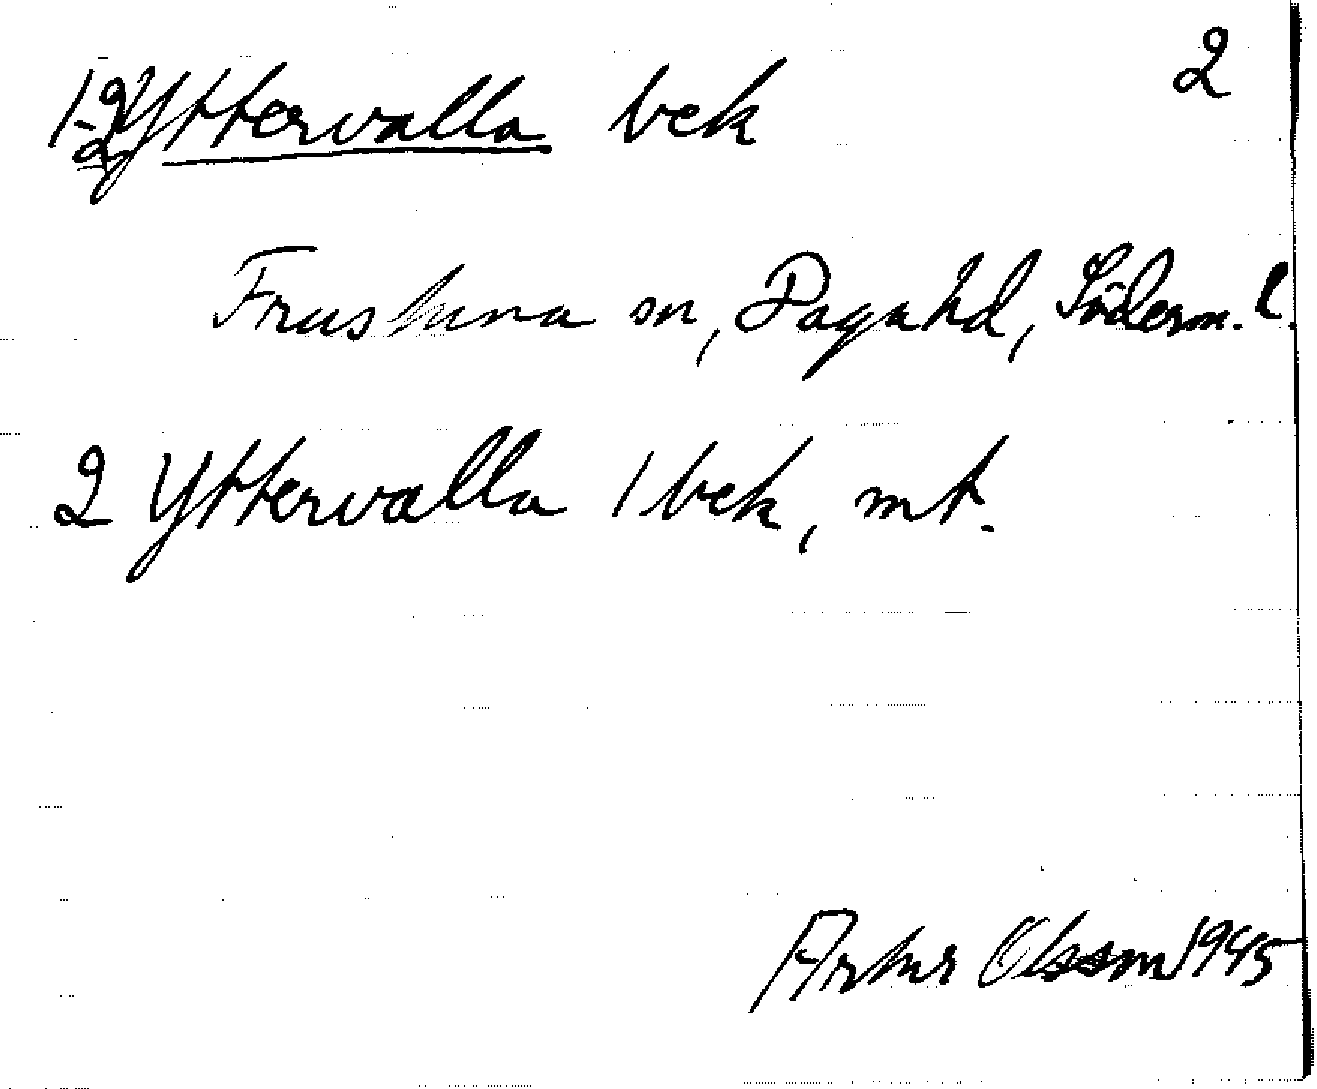 2
1-2 Yttervalla bek
Frustuna sn, Daga hd, Söderm. l.
2 Yttervalla 1 bek, mt.
Artur Olsson 1945